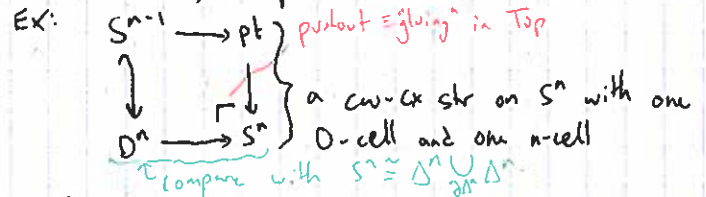 Ex: S^{n-1} → pt pushout = "gluing" in Top
a cw-cx str on S^n with one
D^n → S^n 0-cell and one n-cell
compare with S^n ≅ Δ^n ∪_{∂Δ^n} Δ^n